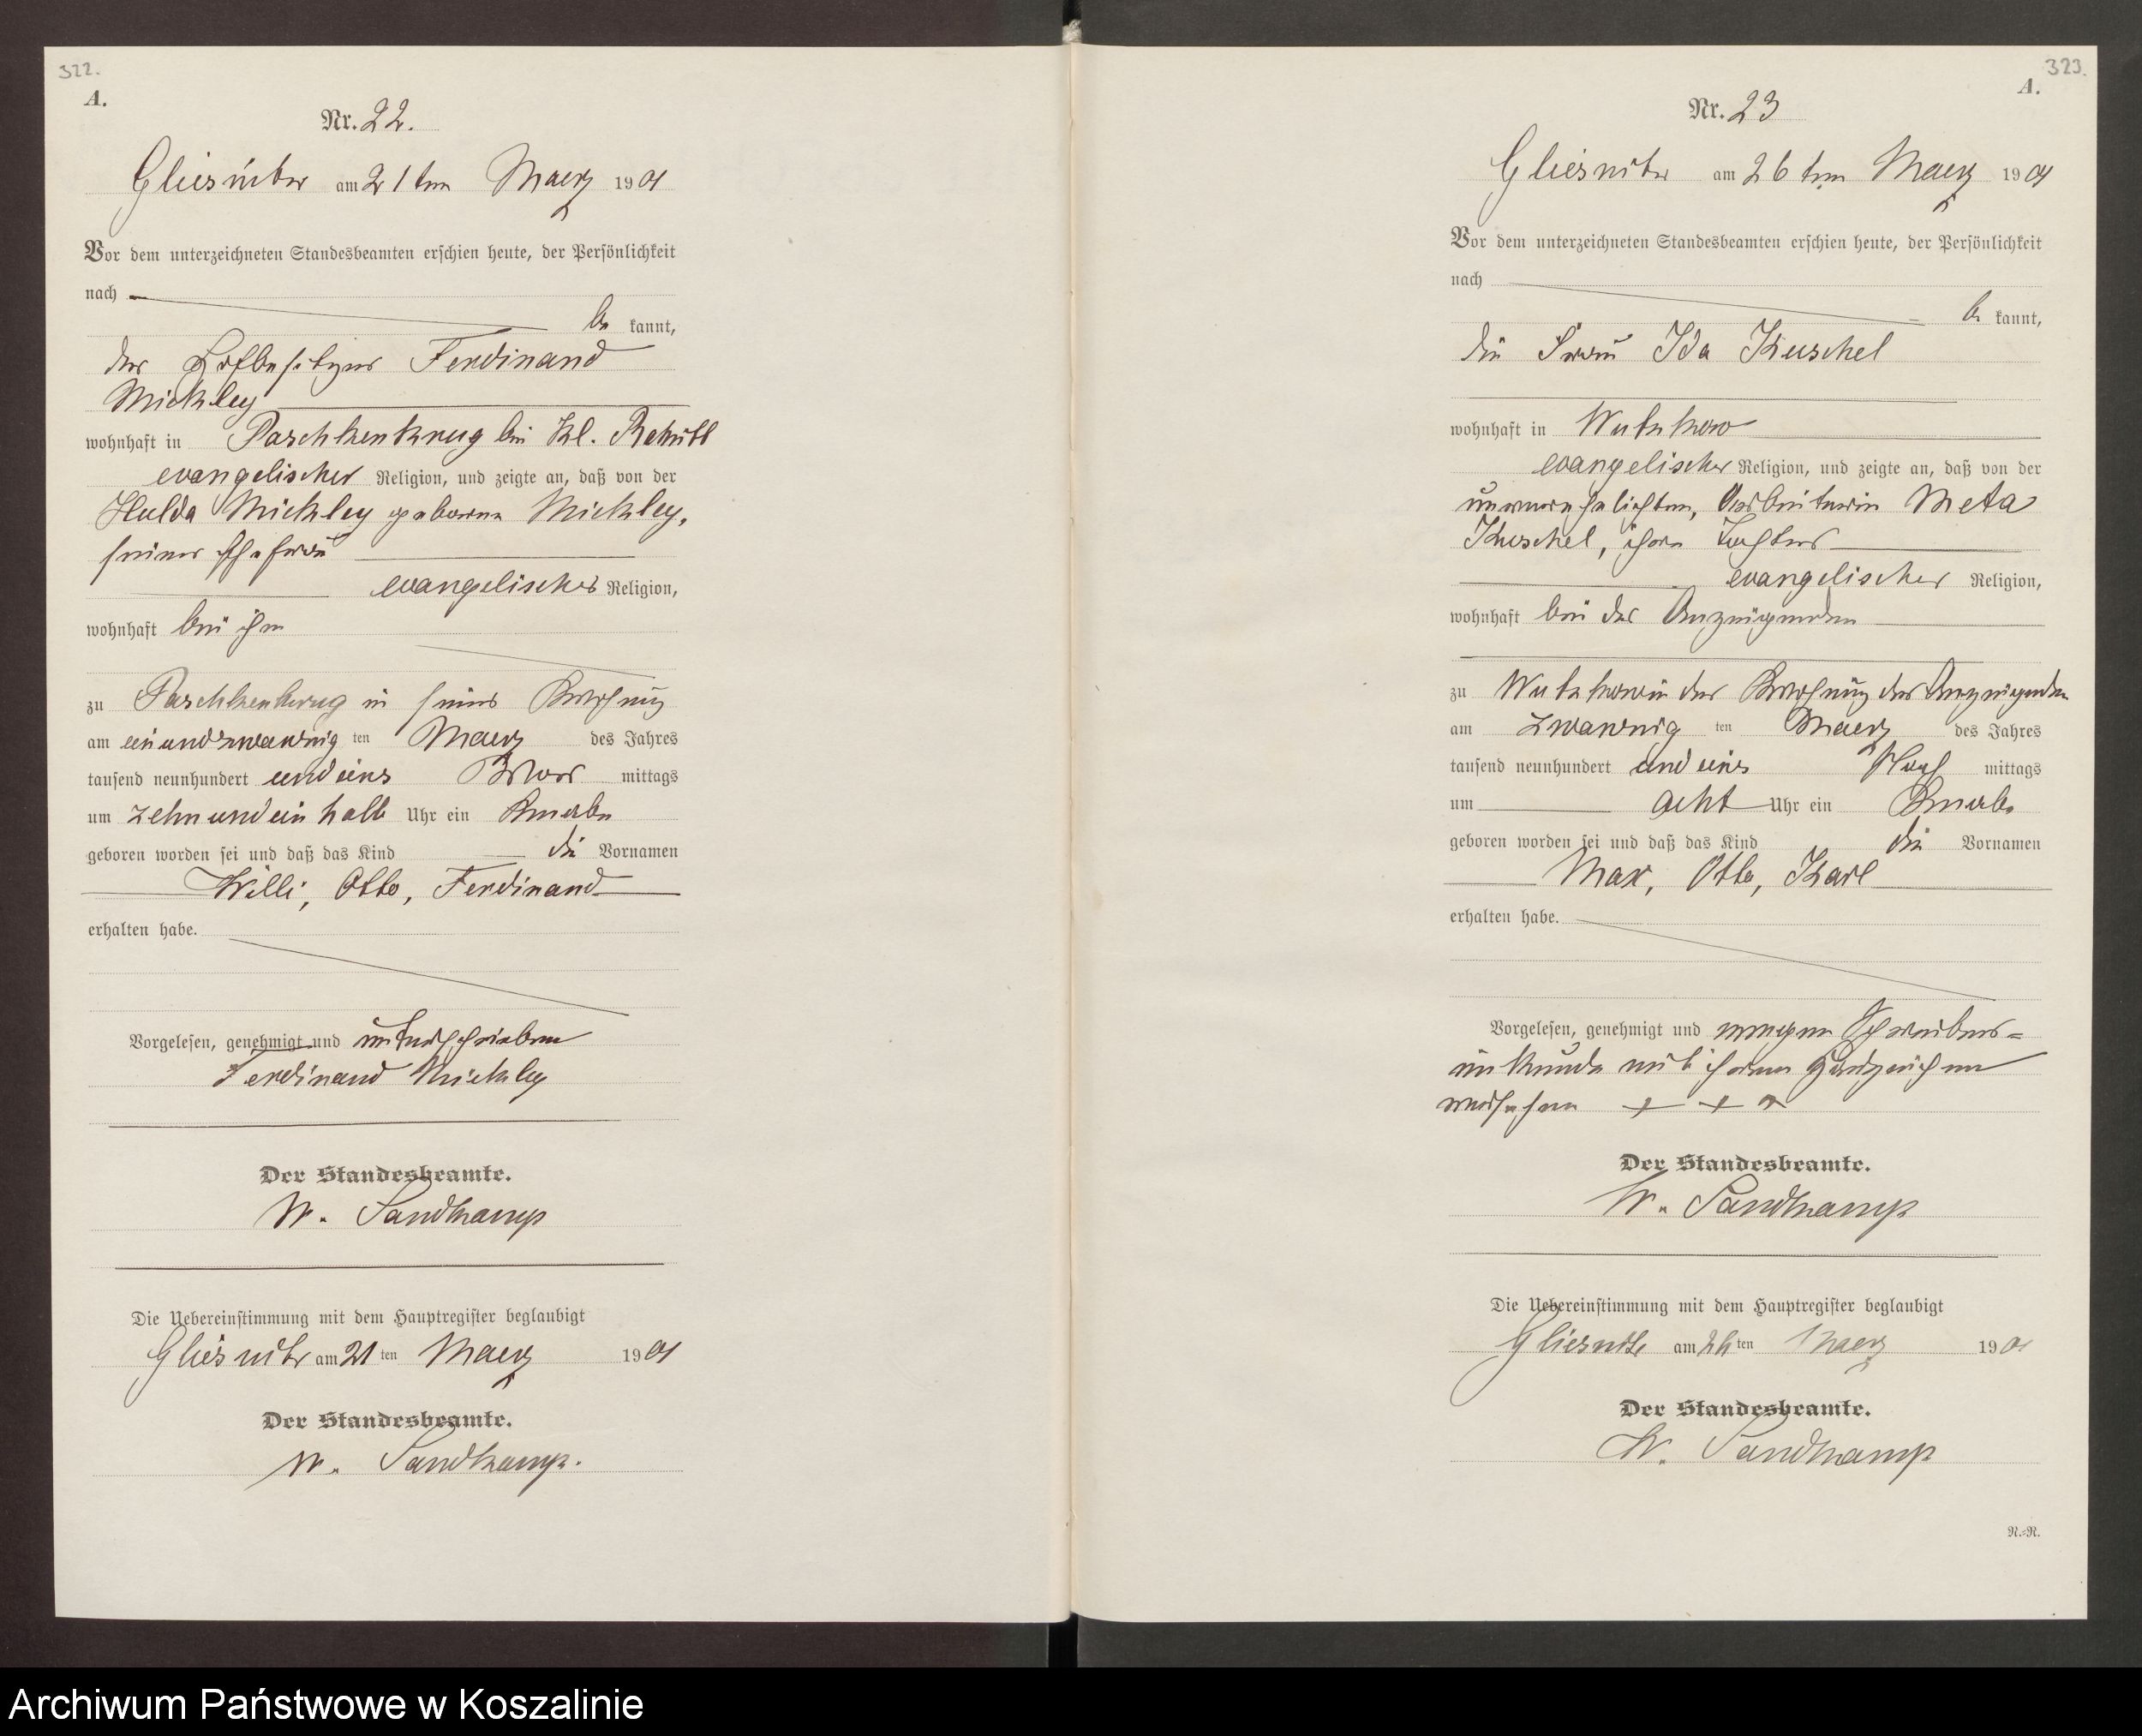 322.
A.
Nr. 22.
Gliesnitz am 21ten Maerz 1901
Vor dem unterzeichneten Standesbeamten erschien heute, der Persönlichkeit
nach
be kannt,
der Hofbesitzer Ferdinand
Mickley
wohnhaft in Paschkenkrug bei Kl.
evangelischer Religion, und zeigte an, daß von der
Hulda Mickley geborene Mickley,
seiner Ehefrau
evangelischer Religion,
wohnhaft bei ihm
zu Paschkenkrug in seiner Wohnung
am einundzwanzig ten Maerz des Jahres
tausend neunhundert und eins Vor mittags
um zehn und ein halb Uhr ein Knabe
geboren worden sei und daß das Kind die Vornamen
Willi, Otto, Ferdinand
erhalten habe.
Vorgelesen, genehmigt und unterschrieben
Ferdinand Mickley
Der Standesbeamte.
W. Sandkamp
Die Uebereinstimmung mit dem Hauptregister beglaubigt
Gliesnitz am 21 ten Maerz 1901
Der Standesbeamte.
W. Sandkamp.
323.
A.
Nr. 23
Gliesnitz am 26ten Maerz 1901
Vor dem unterzeichneten Standesbeamten erschien heute, der Persönlichkeit
nach
be kannt,
die Frau Ida Kuschel
wohnhaft in Wutzkow
evangelischer Religion, und zeigte an, daß von der
unverehelichten, Arbeiterin Meta
Kuschel, ihrer Tochter
evangelischer Religion,
wohnhaft bei der Anzeigenden
zu Wutzkow in der Wohnung der Anzeigenden
am zwanzig ten Maerz des Jahres
tausend neunhundert und eins Nach mittags
um acht Uhr ein Knabe
geboren worden sei und daß das Kind die Vornamen
Max, Otto, Karl
erhalten habe.
Vorgelesen, genehmigt und wegen Schreibens=
unkunde mit ihrem Handzeichen
versehen + + +
Der Standesbeamte.
W. Sandkamp
Die Uebereinstimmung mit dem Hauptregister beglaubigt
Gliesnitz am 26 ten Maerz 1901
Der Standesbeamte.
W. Sandkamp
N.=R.
Archiwum Państwowe w Koszalinie